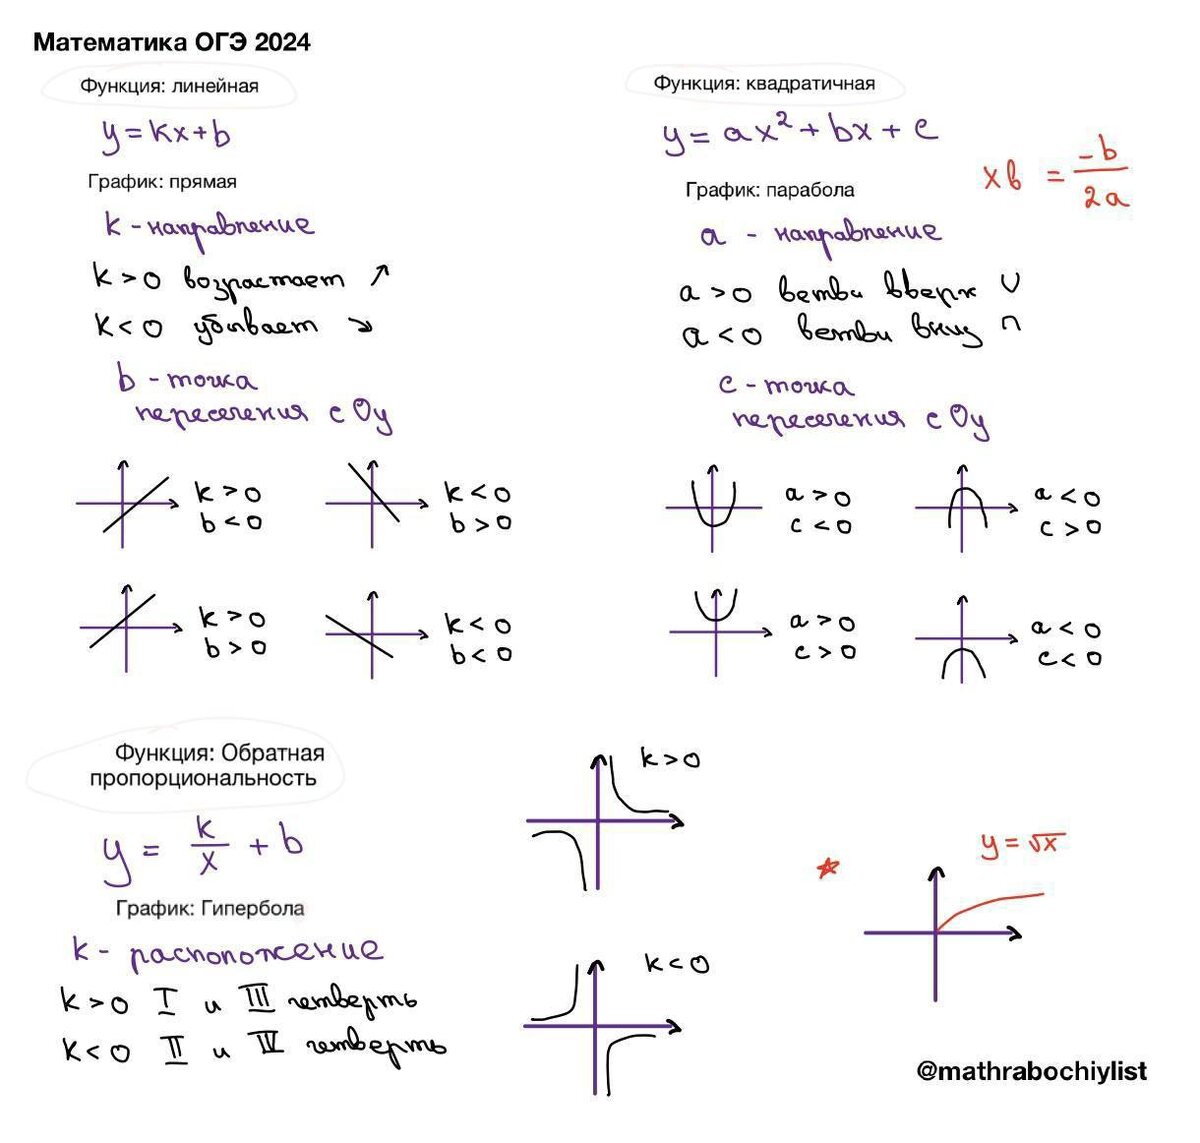 Математика ОГЭ 2024
Функция: линейная
y = kx + b
График: прямая
k - направление
k > 0 возрастает ↗
k < 0 убывает ↘
b - точка
пересечения с Oy
k > 0
b < 0
k < 0
b > 0
k > 0
b > 0
k < 0
b < 0
Функция: квадратичная
y = ax² + bx + c
xв = -b/2a
График: парабола
a - направление
a > 0 ветви вверх ∪
a < 0 ветви вниз ∩
c - точка
пересечения с Oy
a > 0
c < 0
a < 0
c > 0
a > 0
c > 0
a < 0
c < 0
Функция: Обратная
пропорциональность
y = k/x + b
График: Гипербола
k - расположение
k > 0 I и III четверть
k < 0 II и IV четверть
k > 0
k < 0
y = √x
@mathrabochiylist